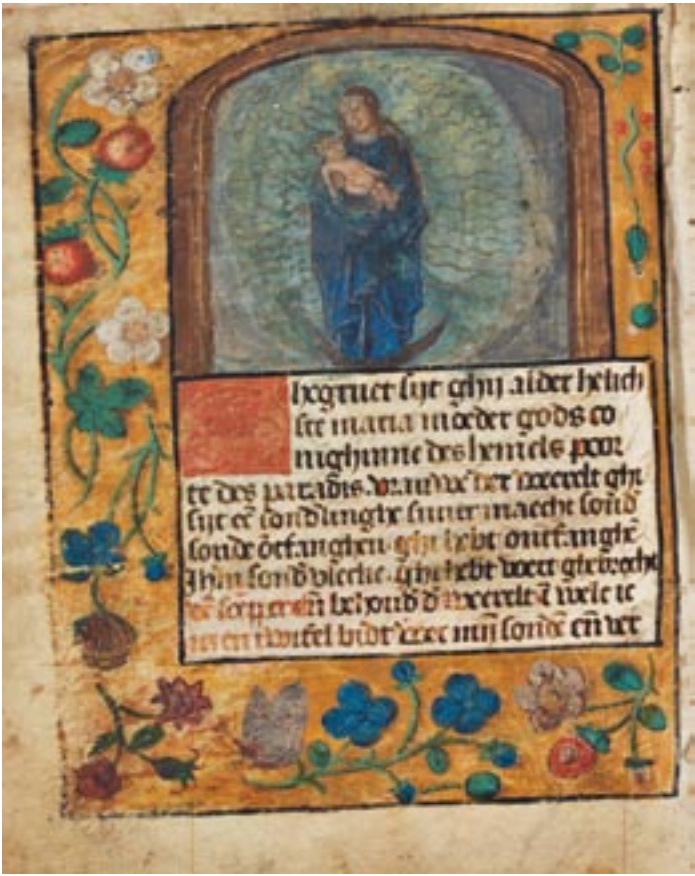 hegruet sijt ghij alder helich
ste maria moeder gods co
nighinne des hemels poor
te des paradis. vrauwe der weerelt ghi
sijt eē sonđlinghe suuer maecht sonđ
sonde ōtfanghen. ghi hebt ontfanghē
Jhm̄ sonđ vlecke. ghi hebt voert ghebrocht
dē scepper eñ behouđ đ weerelt ī welc ic
niet twifel bidt voer mij sondē eñ ver